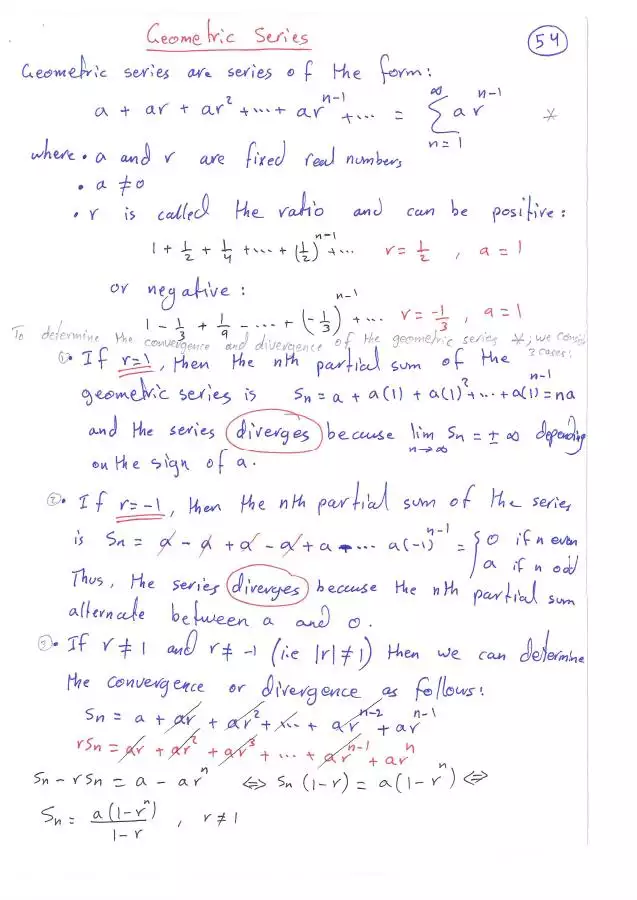 Geometric Series
54
Geometric series are series of the form:
a + ar + ar² + ... + ar^{n-1} + ... = ∑_{n=1}^{∞} a r^{n-1} *
where • a and r are fixed real numbers
• a ≠ 0
• r is called the ratio and can be positive:
1 + 1/2 + 1/4 + ... + (1/2)^{n-1} + ... r = 1/2 , a = 1
or negative:
1 - 1/3 + 1/9 - ... + (-1/3)^{n-1} + ... r = -1/3 , a = 1
To determine the convergence and divergence of the geometric series *, we consider
3 cases:
① • If r=1, then the nth partial sum of the
geometric series is Sn = a + a(1) + a(1)² + ... + a(1)^{n-1} = na
and the series diverges because lim_{n→∞} Sn = ± ∞ depending
on the sign of a.
② • If r = -1, then the nth partial sum of the series
is Sn = a - a + a - a + a - ... a(-1)^{n-1} = { 0 if n even
a if n odd
Thus, the series diverges because the nth partial sum
alternate between a and 0.
③ • If r ≠ 1 and r ≠ -1 (i.e |r| ≠ 1) then we can determine
the convergence or divergence as follows:
Sn = a + ar + ar² + ... + ar^{n-2} + ar^{n-1}
rSn = ar + ar² + ar³ + ... + ar^{n-1} + ar^n
Sn - rSn = a - ar^n ⇔ Sn (1-r) = a(1-r^n) ⇔
Sn = a(1-r^n) / 1-r , r ≠ 1